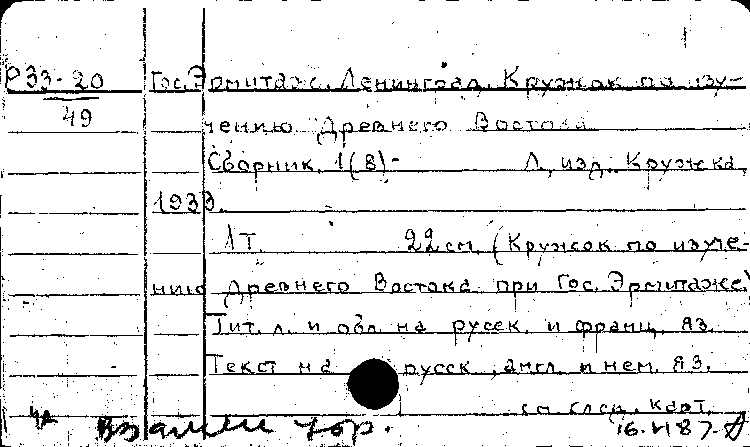 Р33-20 Гос. Эрмитаж. Ленинград. Кружок по изу-
49
чению Древнего Востока
Сборник. 1(8)- Л., изд. Кружка,
1933.
1 т. 22 см. (Кружок по изуче-
нию Древнего Востока при Гос. Эрмитаже)
Тит. л. и обл. на русск. и франц. яз.
Текст на русск., англ. и нем. яз.
см. след. карт.
Взамен гор.